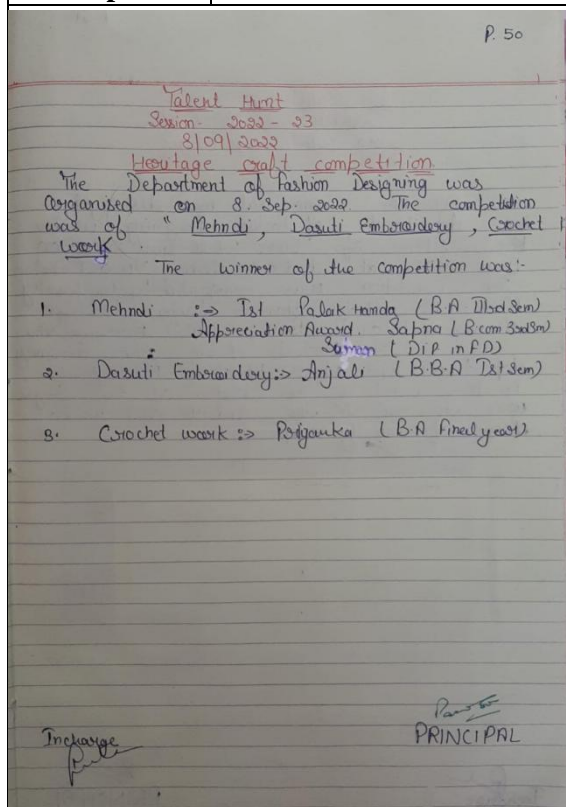 P. 50
Talent Hunt
Session. 2022 - 23
8/09/2022
Heritage craft competition
The Department of Fashion Designing was
Organised on 8. Sep. 2022 The competition
was of " Mehndi, Dasuti Embroidery, Crochet
work.
The winner of the competition was:-
1. Mehndi :=> Ist Palak Handa (B.A IIIrd Sem)
Appreciation Award. Sapna (B.com 3rd Sm)
: Suman (DiP in FD)
2. Dasuti Embroidery:=> Anjali (B.B.A Ist Sem)
3. Crochet work :=> Priyanka (B.A Final year)
Incharge
PRINCIPAL